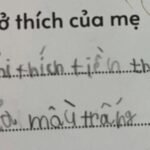 ở thích của mẹ
thích tiền th
màu trắng